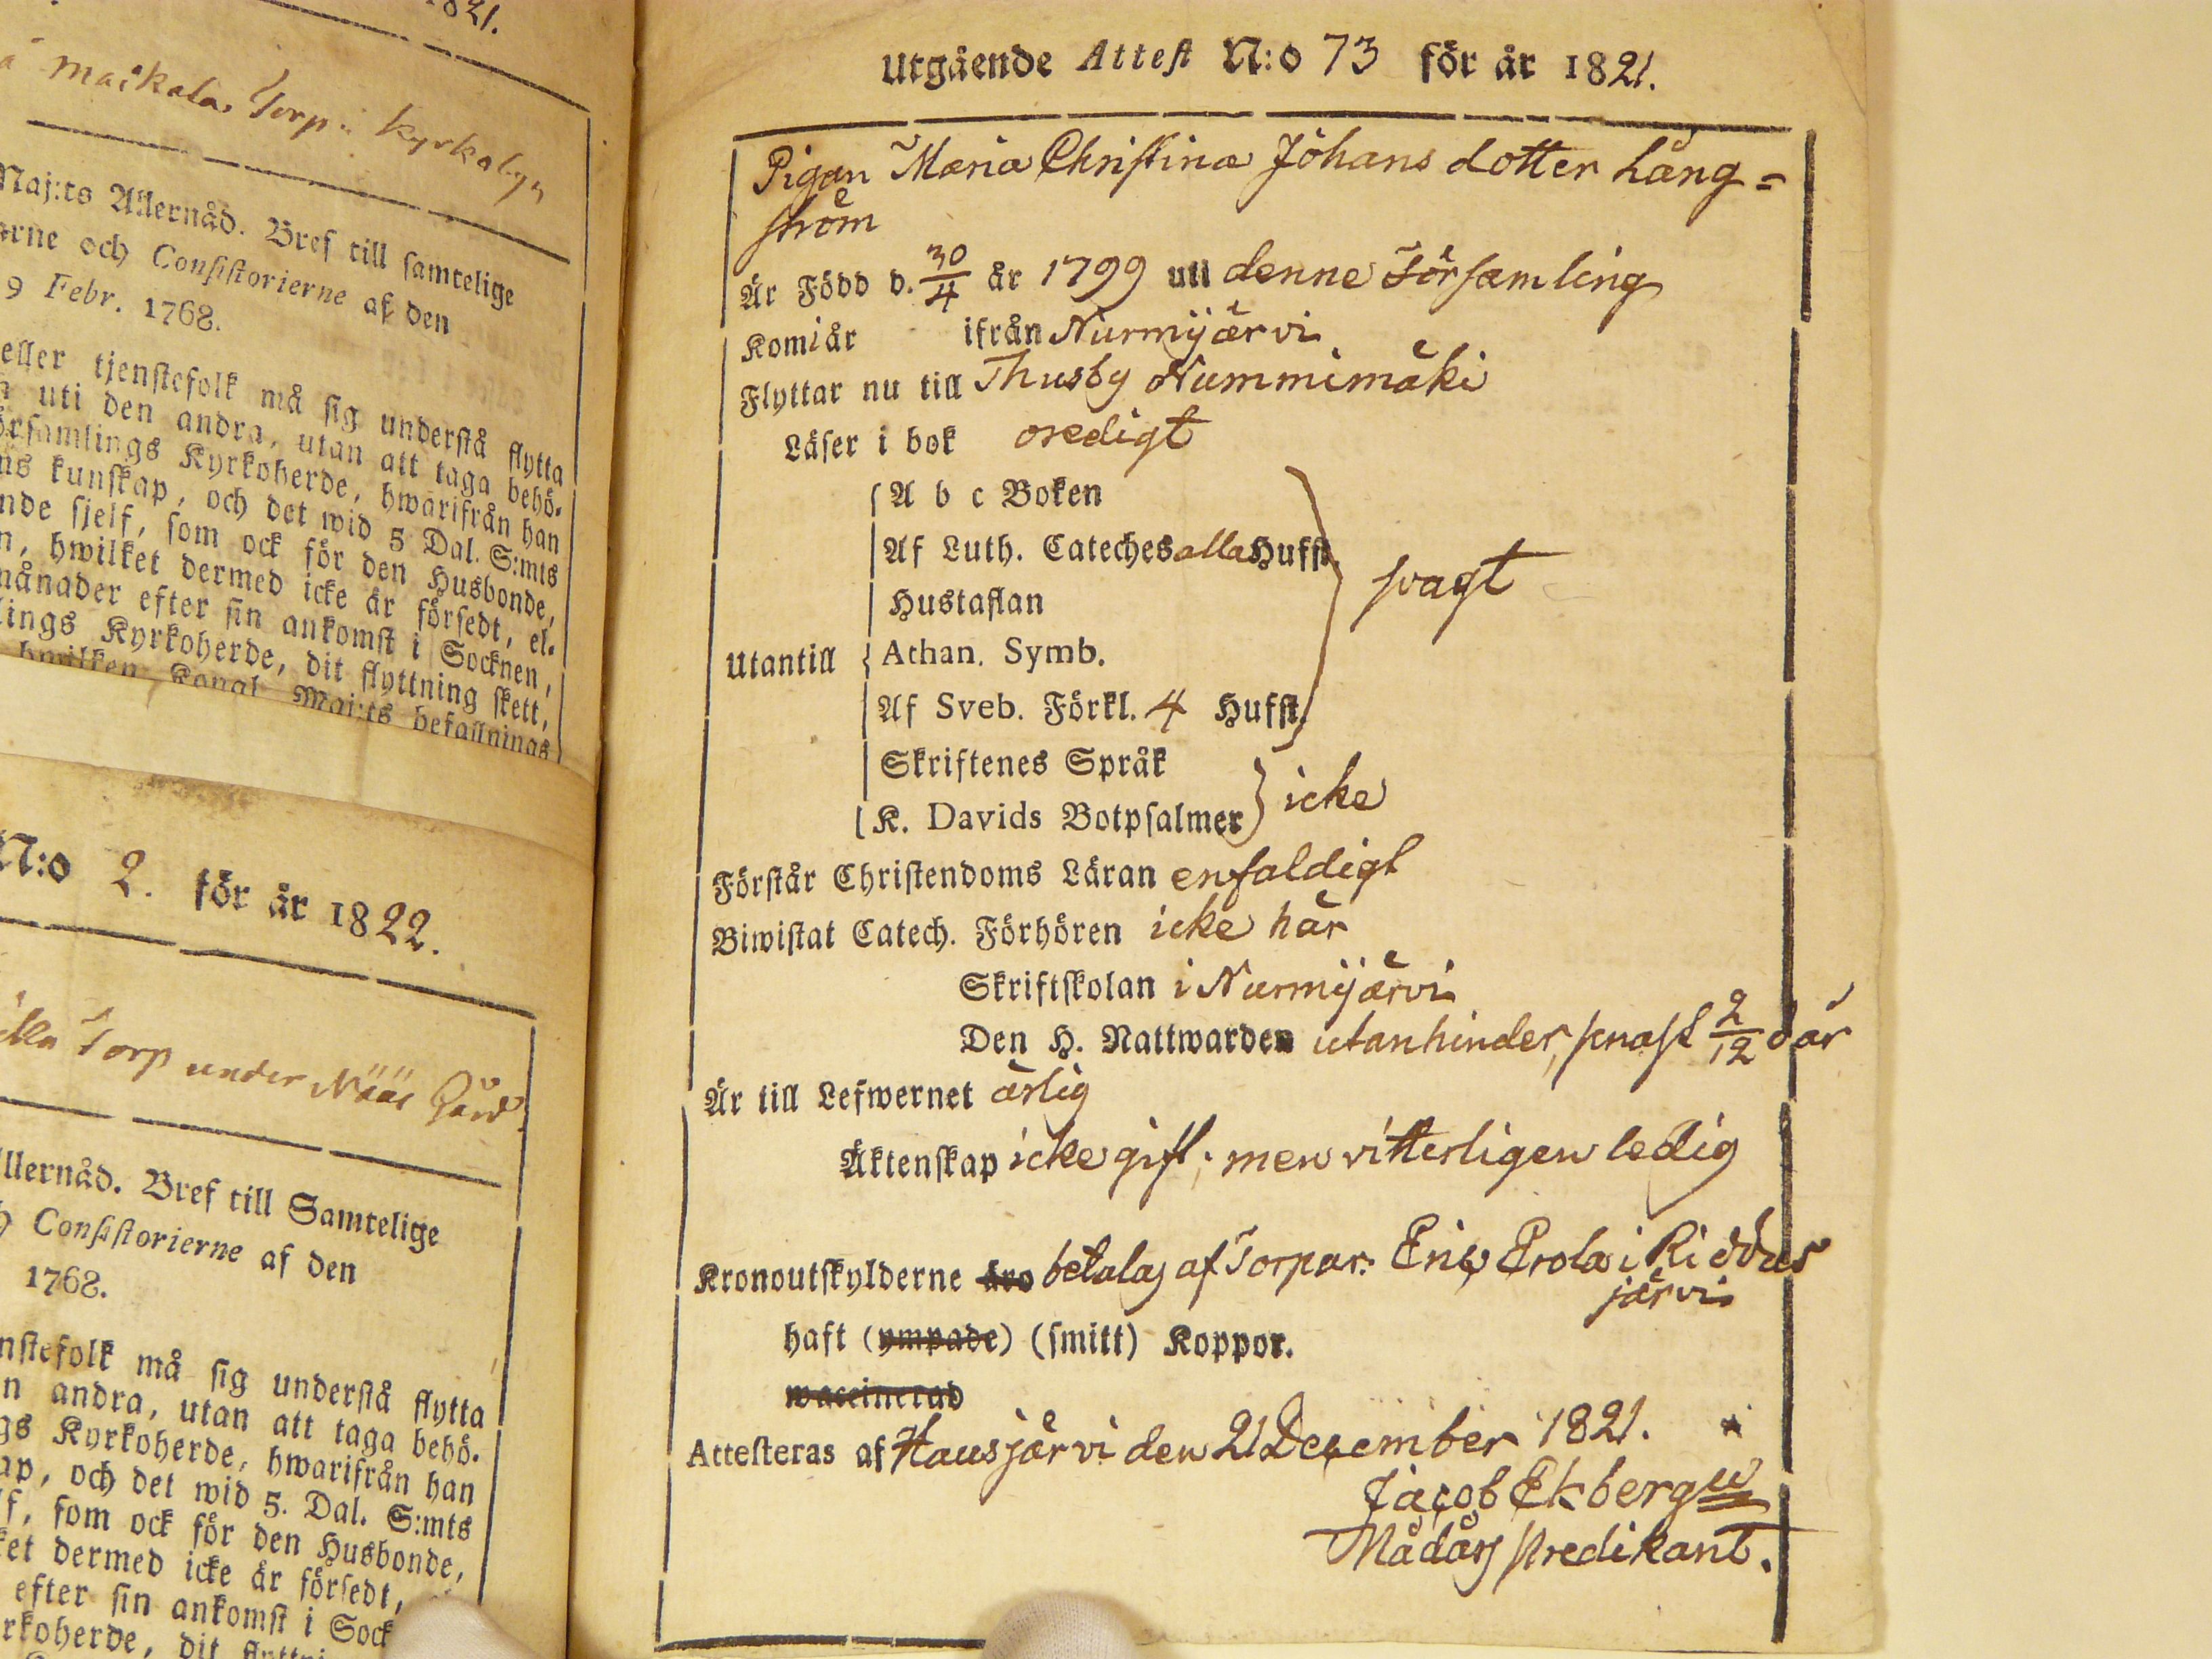 1821.
Maikala Torp i Kyrkobyn
Maj:ts Allernåd. Bref till samtelige
arne och Consistorierne af den
9 Febr. 1768.
eller tjenstefolk må sig understå flytta
n uti den andra, utan att taga behö-
örsamlings Kyrkoherde, hwarifrån han
ns kunskap, och det wid 5 Dal. S:mts
nde sjelf, som ock för den Husbonde,
n, hwilket dermed icke är försedt, el-
månader efter sin ankomst i Socknen,
lings Kyrkoherde, dit flyttning skett,
hwilken Kongl Maj:ts befallnings
N:o 2. för år 1822.
illa Torp under Nääs Gård.
Allernåd. Bref till Samtelige
h Consistorierne af den
1768.
nstefolk må sig understå flytta
n andra, utan att taga behö-
gs Kyrkoherde, hwarifrån han
ap, och det wid 5. Dal. S:mts
lf, som ock för den Husbonde,
ket dermed icke är försedt,
efter sin ankomst i Sock
rkoherde, dit
Utgående Attest N:o 73 för år 1821.
Pigan Maria Christina Johans dotter Lång=
ström
Är Född d. 30/4 år 1799 uti denne Församling
Kom i år ifrån Nurmijärvi
Flyttar nu till Thusby Nummimäki
Läser i bok oredigt
A b c Boken
Af Luth. Cateches alla Hufst.
Hustaflan
svagt
Utantill Athan. Symb.
Af Sveb. Förkl. 4 Hufst.
Skriftenes Språk
icke
K. Davids Botpsalmer
Förstår Christendoms Läran enfaldigt
Biwistat Catech. Förhören icke här
Skriftskolan i Nurmijärvi
Den H. Nattwarden utan hinder, snast 2/12 d år
Är till Lefwernet ärlig
Äktenskap icke gift; men vitterligen ledig
Kronoutskylderne äro betalas af Torpar: Eric Erola i Riddas
järvi
haft (ympade) (smitt) Koppor.
waccinerad
Attesteras af Hausjärvi den 21 December 1821.
Jacob Ekberg
Nådårs Predikant.